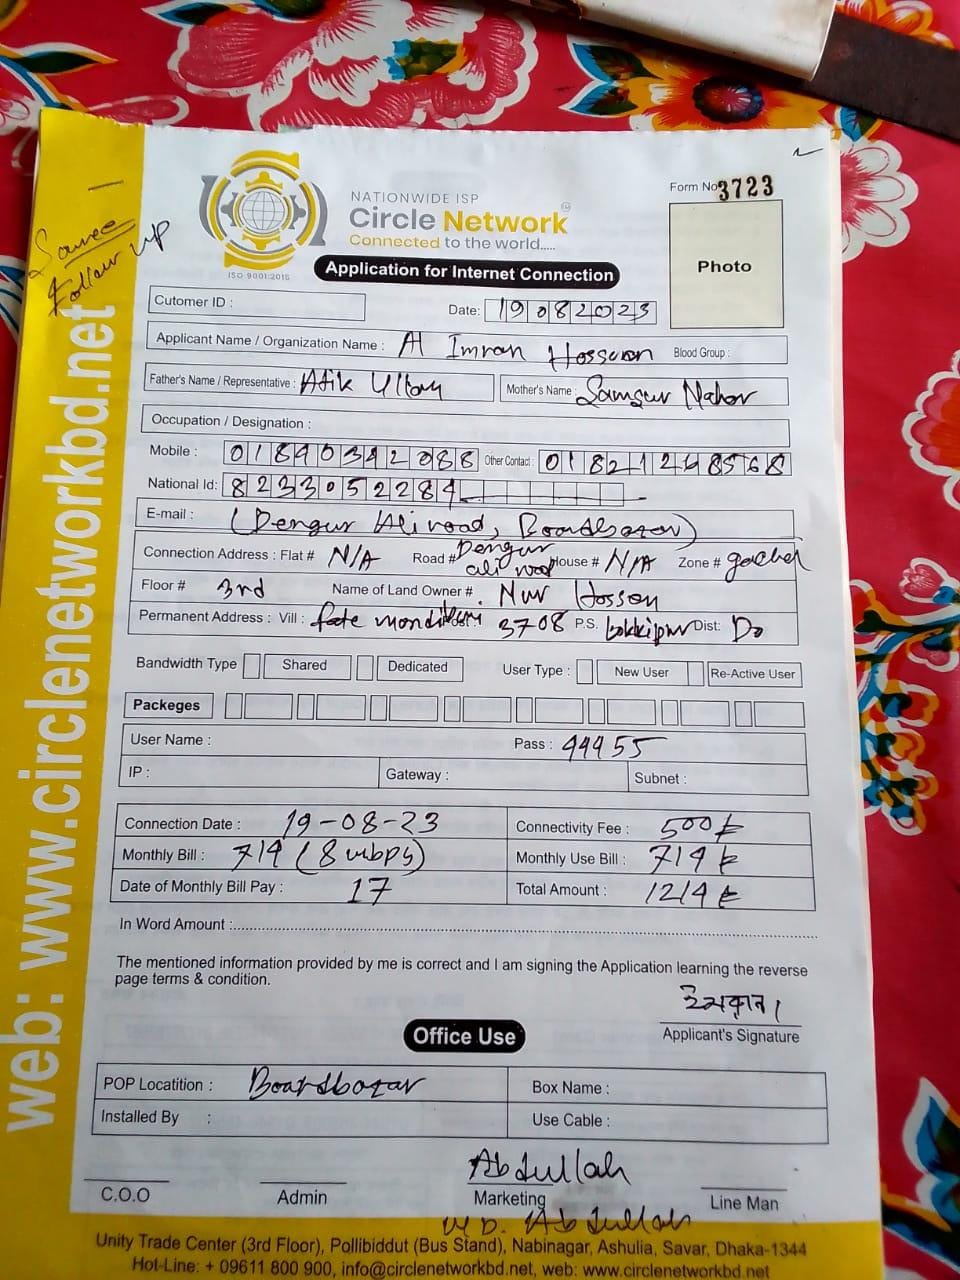 NATIONWIDE ISP
Circle Network
Connected to the world.....
ISO 9001:2015
Form No 3723
Photo
Source
Follow up
web: www.circlenetworkbd.net
Application for Internet Connection
Cutomer ID :
Date: 19082023
Applicant Name / Organization Name : Al Imran Blood Group :
Father's Name / Representative : Atik Ullah Mother's Name : Samsur Nahar
Occupation / Designation :
Mobile : 01840342088 Other Contact : 01821268568
National Id: 8233052284
E-mail : (Dengur Ali road, Boardbazar)
Connection Address : Flat # N/A Road # Dengur ali road House # N/A Zone #
Floor # 3rd Name of Land Owner # Nur Hossen
Permanent Address : Vill : 3708 P.S. lokkipur Dist: Do
Bandwidth Type Shared Dedicated User Type : New User Re-Active User
Packeges
User Name : Pass : 44455
IP : Gateway : Subnet :
Connection Date : 19-08-23 Connectivity Fee : 500৳
Monthly Bill : 714 (8 mbps) Monthly Use Bill : 714৳
Date of Monthly Bill Pay : 17 Total Amount : 1214৳
In Word Amount :
The mentioned information provided by me is correct and I am signing the Application learning the reverse
page terms & condition.
ইমরান।
Applicant's Signature
Office Use
POP Locatition : Boardbazar Box Name :
Installed By : Use Cable :
Abdullah
C.O.O Admin Marketing Line Man
MD. Abdullah
Unity Trade Center (3rd Floor), Pollibiddut (Bus Stand), Nabinagar, Ashulia, Savar, Dhaka-1344
Hot-Line: + 09611 800 900, info@circlenetworkbd.net, web: www.circlenetworkbd.net